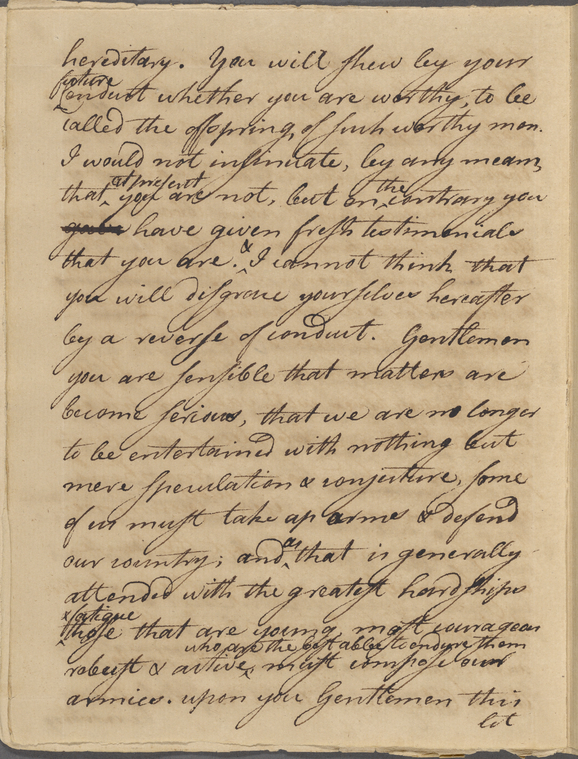 hereditary. You will shew by your
future
conduct whether you are worthy, to be
called the offspring, of such worthy men.
I would not insinuate, by any means,
at present the
that you are not, but on contrary you
have given fresh testimonials
&
that you are. I cannot think that
you will disgrace yourselves hereafter
by a reverse of conduct. Gentlemen
you are sensible that matters are
become serious, that we are no longer
to be entertained with nothing but
mere speculation & conjecture, some
of us must take up arms & defend
as
our country; and that is generally
attended with the greatest hardships
& fatigue
those that are young, most courageous
who are the best able to endure them
robust & active, must compose our
armies. upon you Gentlemen this
lot